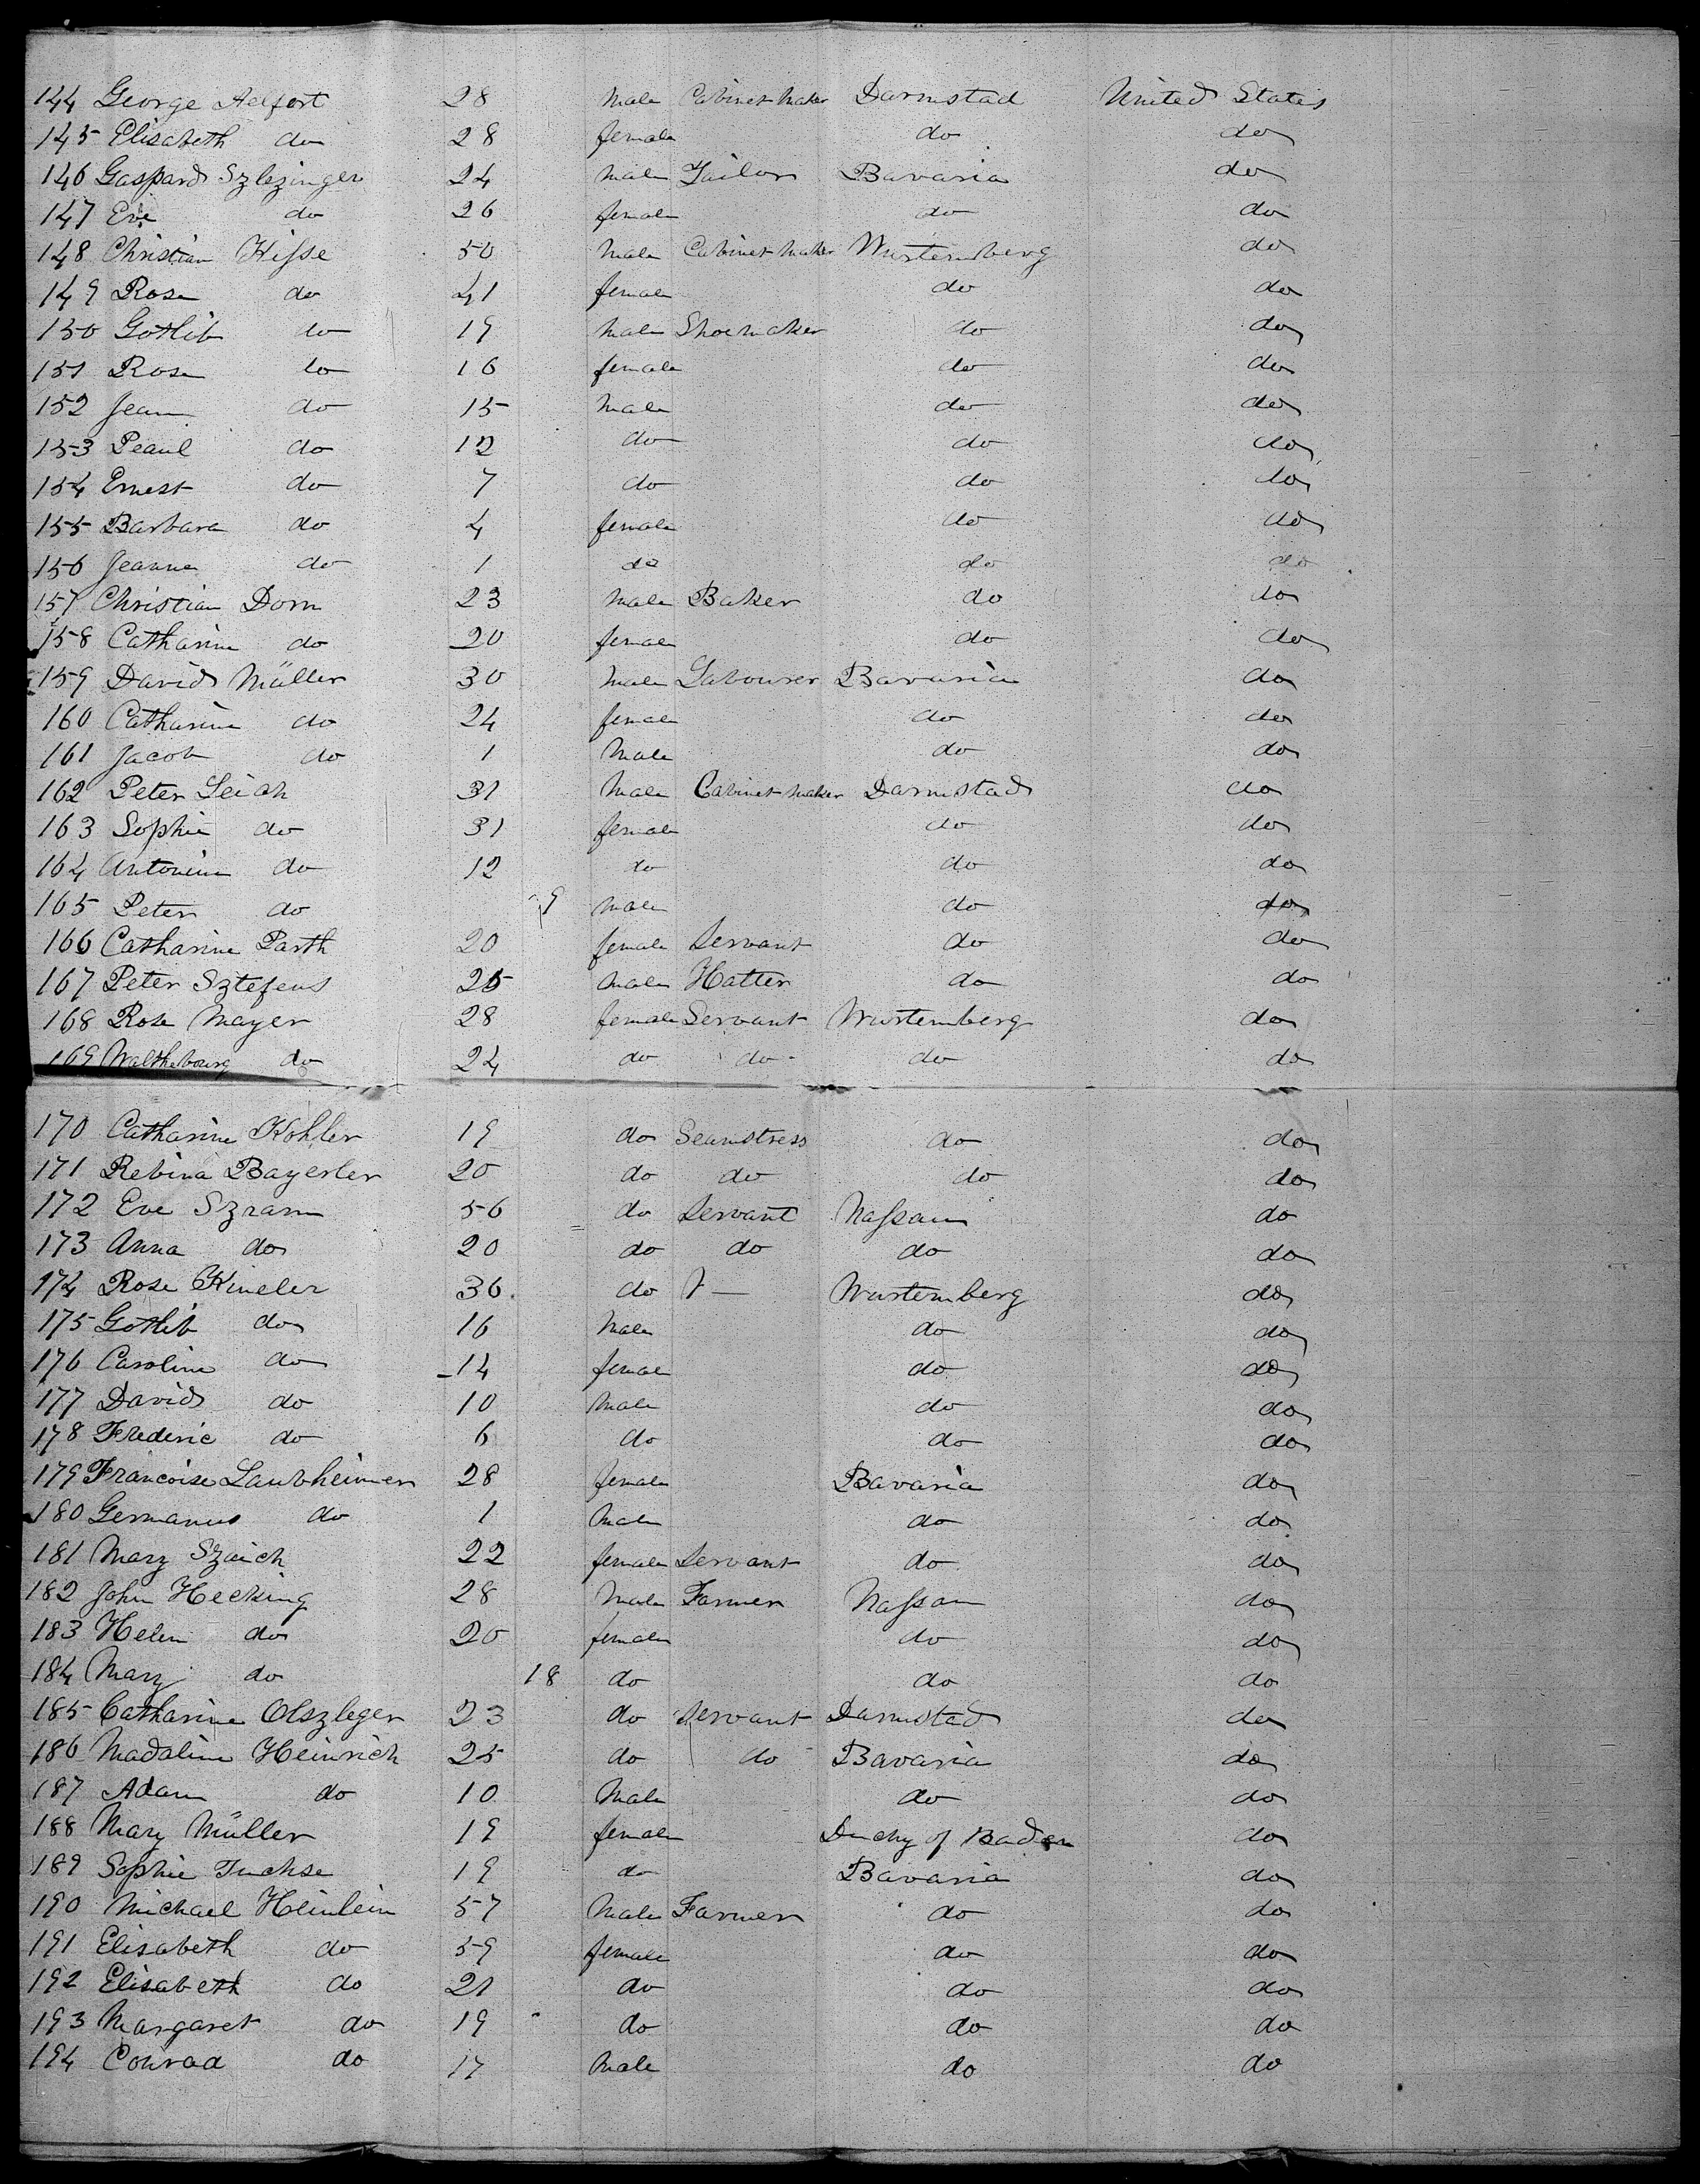 144 George Aelfort 28 male Cabinet maker Darmstad United States
145 Elisabeth do 28 female do do
146 Gaspard Szlezinger 24 male Tailor Bavaria do
147 Eve do 26 female do do
148 Christian Hisse 50 male Cabinet maker Wurtemberg do
149 Rose do 41 female do do
150 Gotlib do 19 male Shoemaker do do
151 Rose do 16 female do do
152 Jean do 15 male do do
153 Peaul do 12 do do do
154 Ernest do 7 do do do
155 Barbara do 4 female do do
156 Jeanne do 1 do do do
157 Christian Dorn 23 male Baker do do
158 Catharine do 20 female do do
159 David Müller 30 male Labourer Bavaria do
160 Catharine do 24 female do do
161 Jacob do 1 male do do
162 Peter Leich 31 male Cabinet maker Darmstad do
163 Sophie do 31 female do do
164 Antonine do 12 do do do
165 Peter do 9 male do do
166 Catharine Parth 20 female Servant do do
167 Peter Sztefens 25 male Hatter do do
168 Rose Mayer 28 female Servant Wurtemberg do
169 Walthebourg do 24 do do do do
170 Catharine Kohler 19 do Seamstress do do
171 Rebina Bayerler 20 do do do do
172 Eve Szram 56 do Servant Nassau do
173 Anna do 20 do do do do
174 Rose Kineler 36. do Wurtemberg do
175 Gotlib do 16 male do do
176 Caroline do 14 female do do
177 David do 10 male do do
178 Frederic do 6 do do do
179 Francoise Laubheimer 28 female Bavaria do
180 Germanus do 1 male do do
181 Mary Szaich 22 female Servant do do
182 John Hecking 28 male Farmer Nassau do
183 Helen do 20 female do do
184 Mary do 18 do do do
185 Catharine Olszleger 23 do Servant Darmstad do
186 Madaline Heinrich 25 do do Bavaria do
187 Adam do 10 male do do
188 Mary Müller 19 female Duchy of Baden do
189 Sophie Fuchse 19 do Bavaria do
190 Michael Heinlein 57 male Farmer do do
191 Elisabeth do 59 female do do
192 Elisabeth do 21 do do do
193 Margaret do 19 do do do
194 Conrad do 17 male do do